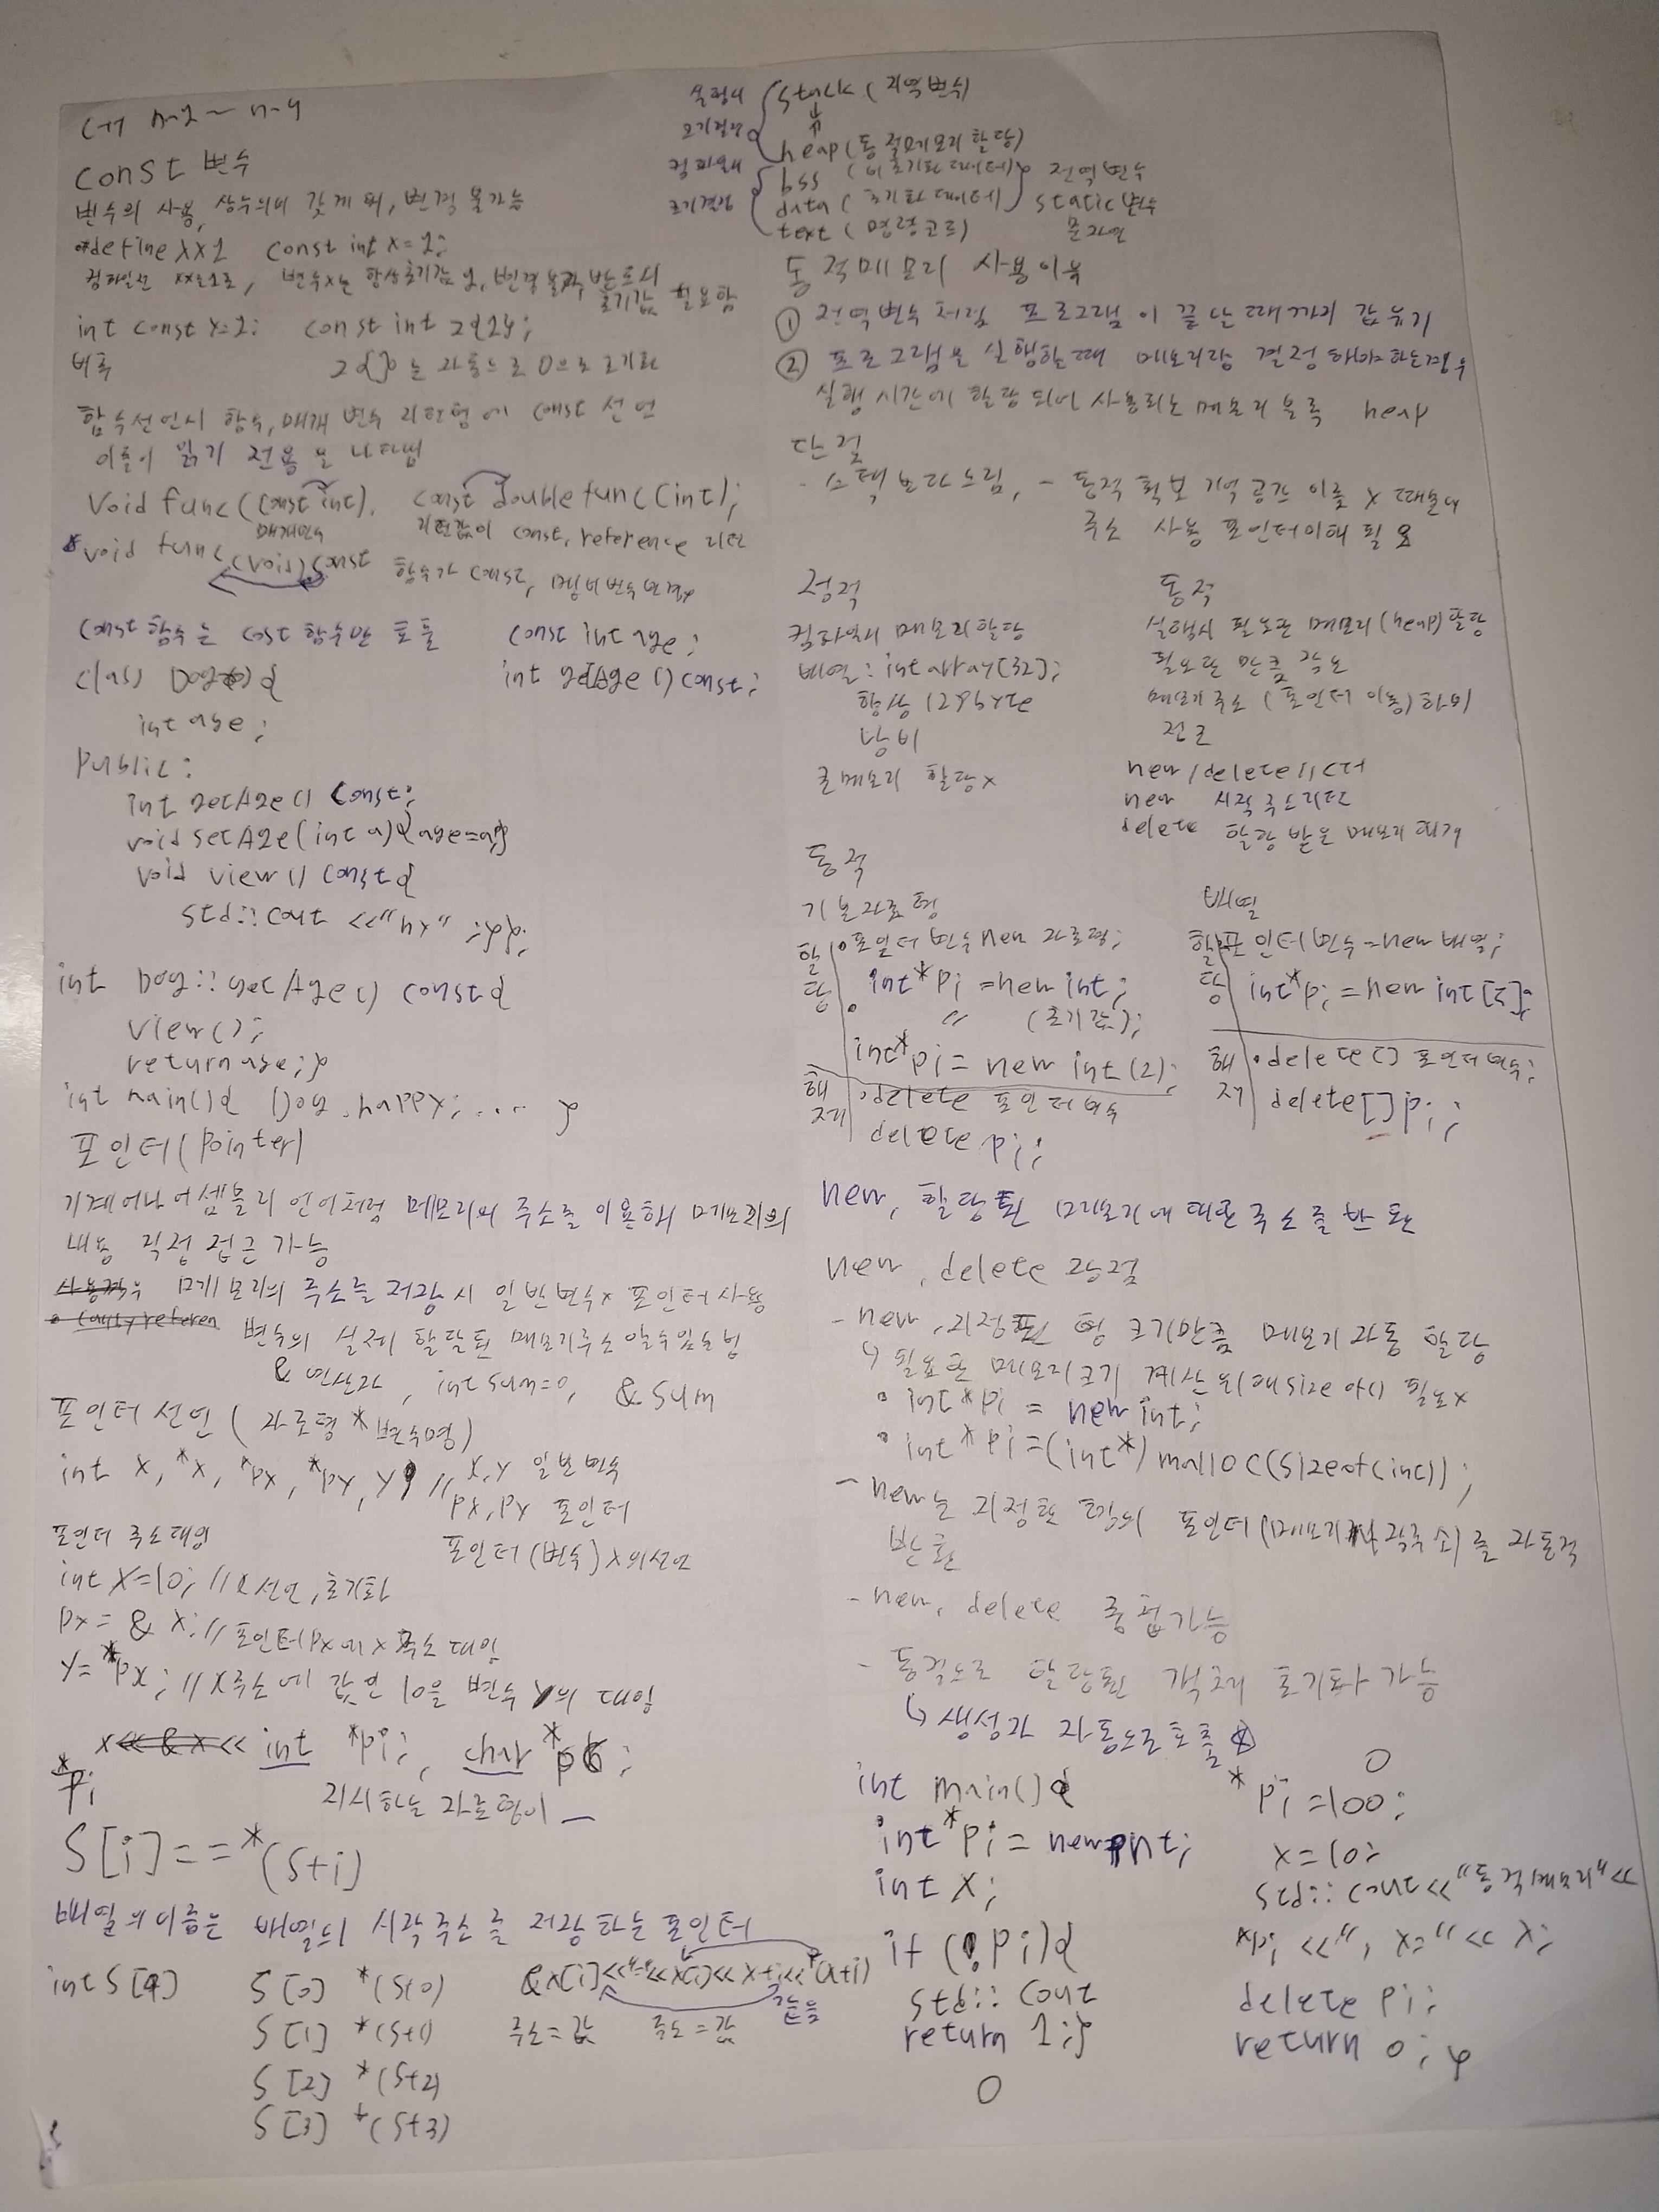 const 변수
변수의 사용, 상수의미 갖게 돼, 변경 불가능
#define xx 1 const int x=1;
int const y=2; const int z{2};
z{}는 자동으로 0으로 초기화
함수선언시 함수, 매개 변수 리턴형에 const 선언
이들이 읽기 전용을 나타냄
void func(const int). const double func(int);
매개변수 리턴값이 const, reference 리턴
void func(void)const 함수가 const, 멤버변수변경x
const 함수는 cost 함수만 호출 const int age;
int getAge() const;
class Dog {
int age;
public:
int getAge() const;
void setAge(int a){age=a;}
void view() const{
std::cout <<"hx" ;}};
int Dog::getAge() const{
view();
return age;}
int main(){ Dog happy; .... }
포인터(pointer)
기계어나 어셈블리 언어처럼 메모리의 주소를 이용해서 메모리의
내용 직접 접근 가능
메모리의 주소를 저장시 일반변수x 포인터 사용
변수의 실제 할달된 메모리주소 알수있는법
& 연산자, int sum=0, & sum
포인터 선언 (자료형 *변수명)
int x, *x, *px, *py, y; // x,y 일반 변수
px, py 포인터
포인터 주소대입
포인터(변수) x의선언
int x=10; // 선언, 초기화
px = & x; //포인터px에 x 주소 대입
y= *px; //x주소에 값인 10을 변수 y의 대입
x<< & x << int *pi; char *pc;
*pi
지시하는 자료형이 _
S[i]==*(S+i)
배열의이름은 배열의 시작주소를 저장하는 포인터
int S[4] S[0] *(S+0) &x[i]<<"="<<x[i]<< x+i<<*(x+i)
S[1] *(S+1) 주소=값 주소=값 같음
S[2] *(S+2)
S[3] *(S+3)
실행시 stack (지역변수)
크기결정 heap (동적메모리 할당)
컴파일때 bss (비초기화 데이터) 전역변수
크기결정 data (초기화 데이터) static변수
text (명령코드) 문자열
동적메모리 사용이유
① 전역변수처럼 프로그램이 끝날때까지 값유지
② 프로그램을 실행할때 메모리량 결정해야하는경우
실행 시간에 할당 되어 사용되는 메모리 블록 heap
단점
- 스택보다느림, - 동적 확보 기억 공간 이름 x 때문에
주소 사용 포인터이해 필요
정적 동적
컴파일시 메모리할당 실행시 필요한 메모리(heap)할당
배열: int array[32]; 필요한 만큼
항상 128byte 메모리주소 (포인터 이용)하여
낭비 접근
큰메모리 할당x new/delete //C++
new 시작 주소리턴
delete 할당 받은 메모리 회수
동적
기본자료형 배열
할당 포인터 변수 new 자료형; 할당 포인터변수=new 배열;
int*pi =new int; int*pi =new int[5];
" (초기값);
int*pi = new int(2);
해제 delete 포인터변수 해제 delete[] 포인터변수;
delete pi; delete[] pi;
new, 할당된 메모리에 대한 주소를 반환
new, delete 장점
- new, 지정된 형 크기만큼 메모리 자동 할당
↳ 필요한 메모리크기 계산 위해 size of() 필요x
• int *pi = new int;
• int *pi=(int*) malloc(sizeof(int));
- new는 지정한 형의 포인터(메모리시작주소)를 자동적
반환
- new, delete 중첩가능
- 동적으로 할당된 객체 초기화 가능
↳ 생성자 자동으로호출
int main(){ *pi =100;
int *pi = new int; x=10;
int x; std::cout<<"동적메모리"<<
if (!pi){ *pi <<", x="<< x;
std::cout delete pi;
return 1;} return 0; }